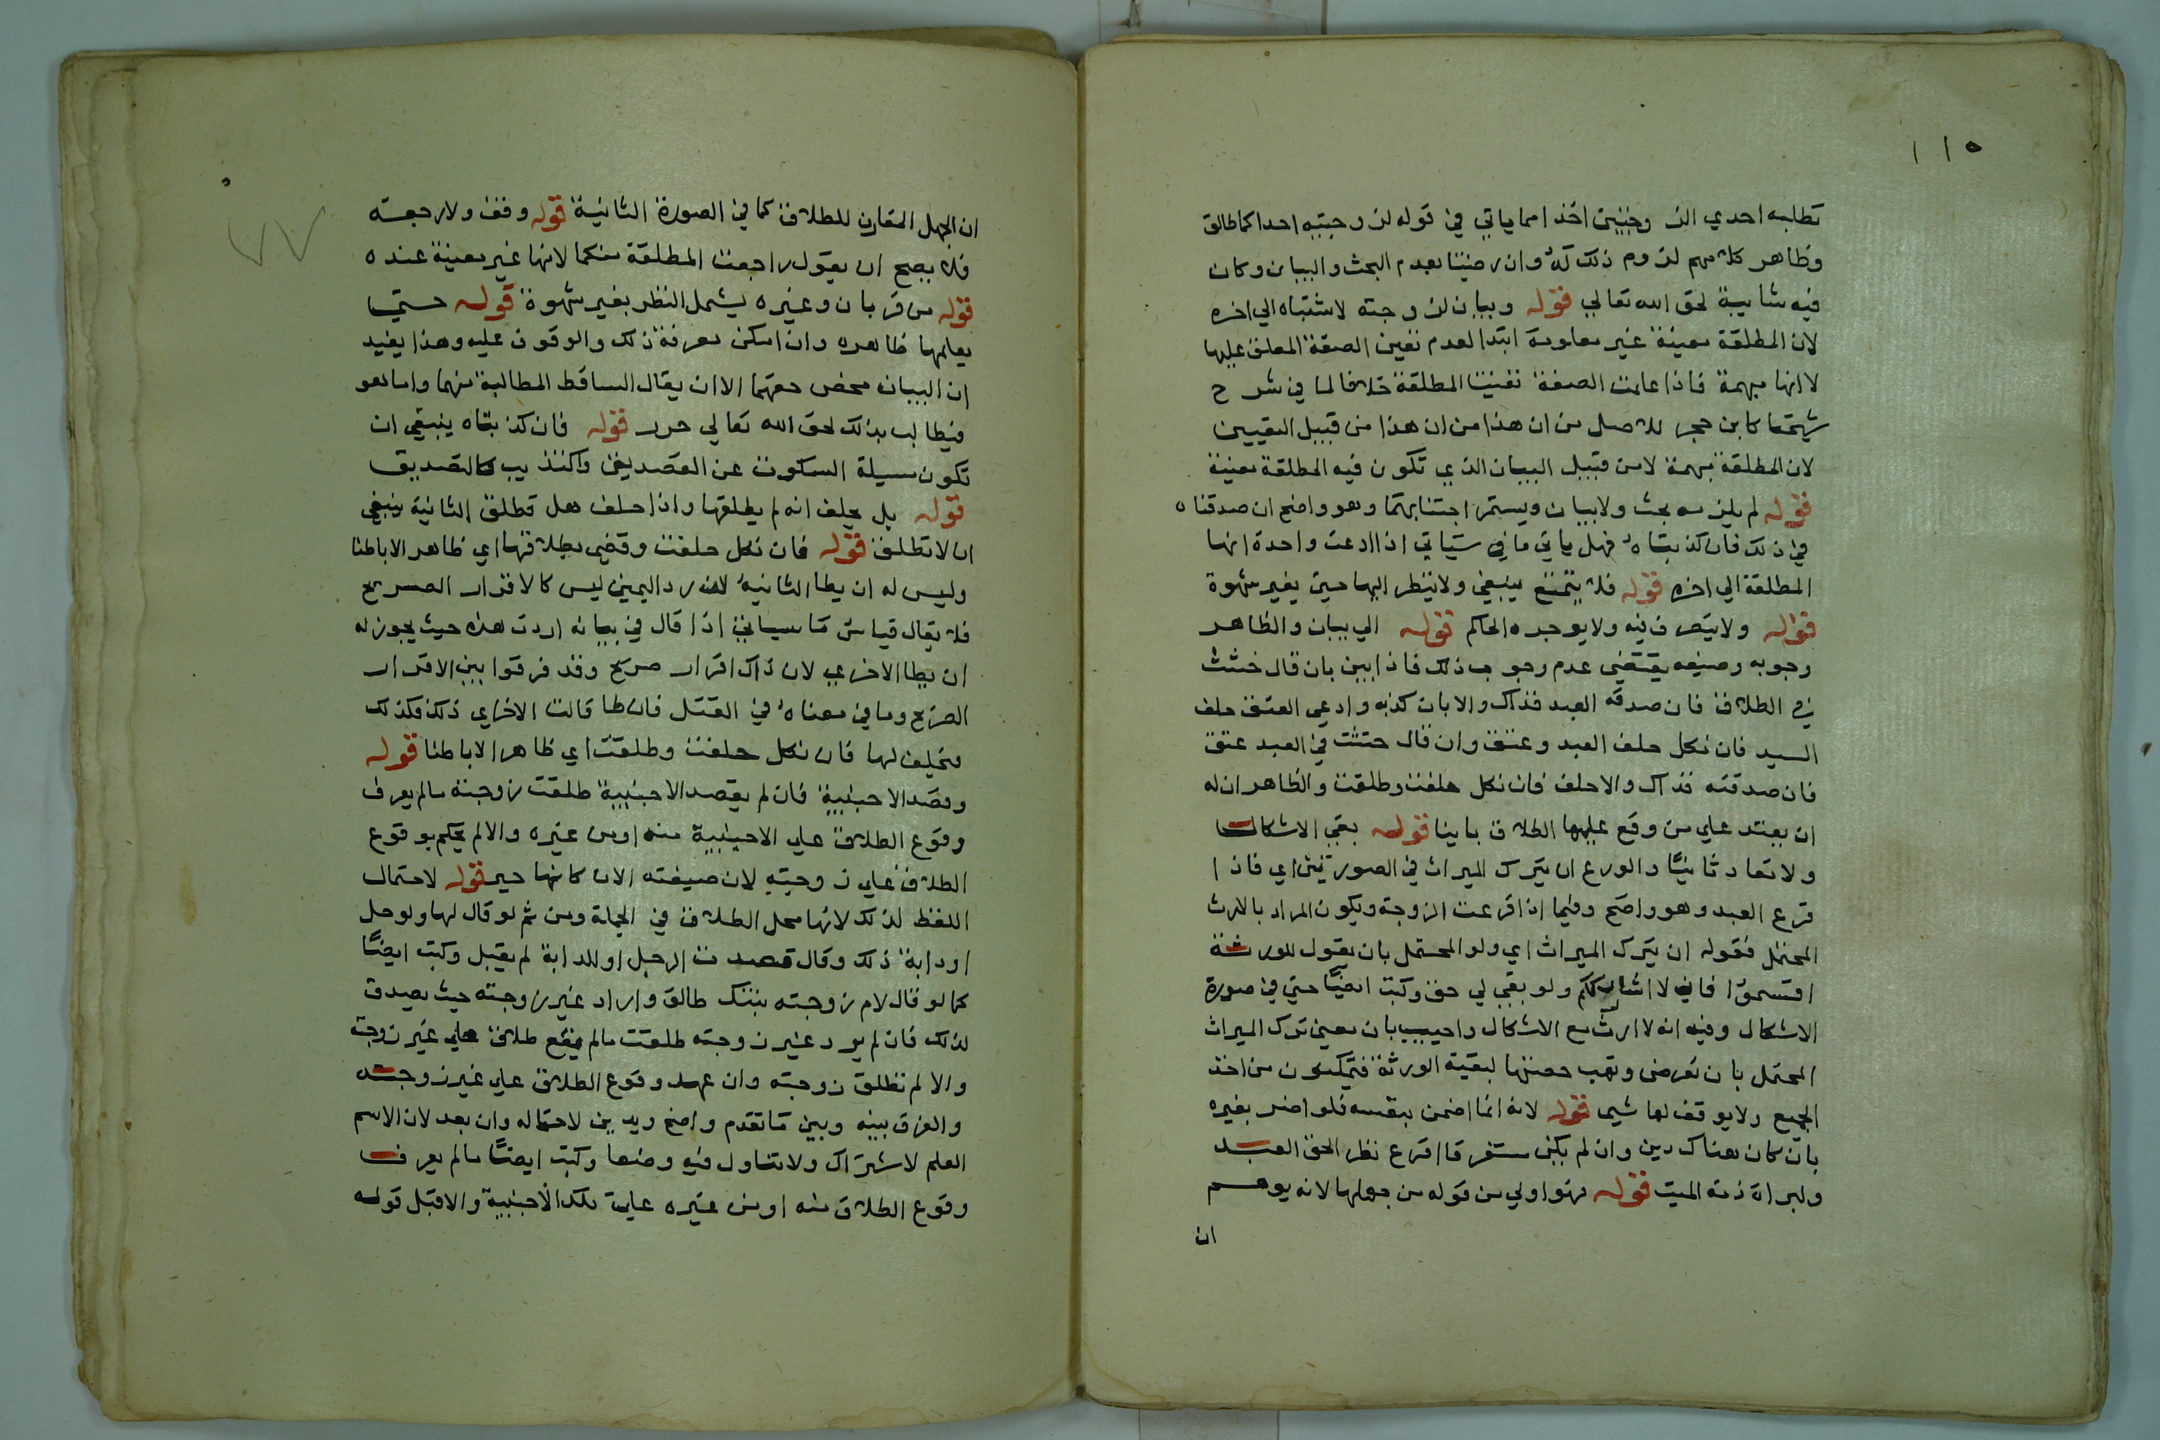 ١١٥
تطلبه احدي الزوجتين اخذا مما ياتي في قوله لزوجتيه احداكما طالق
وظاهر كلامهم لزوم ذلك له وان رضيتا بعدم البحث والبيان وكان
فيه شايبة لحق الله تعالي قوله وبيان لزوجته لاشتباه الي اخره
لان المطلقة معينة غير معلومة ابتدا لعدم تعين الصفة المعلق عليها
لا انها مبهمة فاذا علمت الصفة تعينت المطلقة خلافا لما في شرح
شيخنا كابن حجر للاصل من ان هذا من ان هذا من قبيل التعيين
لان المطلقة مبهمة لا من قبيل البيان الذي تكون فيه المطلقة معينة
قوله لم يلزمه بحث ولا بيان ويستمر اجتنابهما وهو واضح ان صدقناه
في ذلك فان كذبتاه فهل ياتي ما في سياتي اذا ادعت واحدة انها
المطلقة الي اخره قوله فلا يتمتع ينبغي ولا ينظر اليها حين بغير شهوة
قوله ولا يتصرف فيه ولا يوجره الحاكم قوله الي بيان والظاهر
وجوبه وصنيعه يقتضي عدم وجوب ذلك فاذا بين بان قال حنثت
في الطلاق فان صدقه العبد فذاك والا بان كذبه وادعي العتق حلف
السيد فان نكل حلف العبد وعتق وان قال حنثت في العبد عتق
فان صدقته فذاك والا حلف فان نكل حلفت وطلقت والظاهر ان له
ان يعقد علي من وقع عليها الطلاق باينا قوله بقي الاشكال
ولا تعاد ثانيا والورع ان تترك الميراث في الصورتين اي فاذا
قرع العبد وهو واضح وفيما اذا قرعت الزوجة ويكون المراد بالارث
المحتمل فقوله ان تترك الميراث اي ولو المحتمل بان تقول للورثة
اقتسموا فاني لا اشارككم ولو بقي لي حق وكتب ايضا حتي في صورة
الاشكال وفيه انه لا ارث مع الاشكال واجيب بان معني ترك الميراث
المحتمل بان تعرض وتهب حصتها لبقية الورثة فيتمكنون من اخذ
الجميع ولا يوقف لها شيء قوله لانه انما اضر بنفسه فلو اضر بغيره
بان كان هناك دين وان لم يكن مستغرقا اقرع نظر الحق العبد
ولبراة ذمة الميت قوله هو اولي من قوله من جهلها لانه يوهم
ان
٧٧
ان الجهل المقارن للطلاق كما في الصورة الثانية قوله وقف ولا رجعة
فلا يصح ان يقول راجعت المطلقة منكما لانها غير معينة عنده
قوله من قربان وغيره يشمل النظر بغير شهوة قوله حتي
يعلمها ظاهره وان امكن معرفة ذلك والوقوف عليه وهذا يفيد
ان البيان محض حقهما الا ان يقال الساقط المطالبة منهما واما هو
فيطالب بذلك لحق الله تعالي حرر قوله فان كذبتاه ينبغي ان
تكون مسيلة السكوت عن التصديق والتكذيب كالتصديق
قوله بل يحلف انه لم يطلقها واذا حلف هل تطلق الثانية ينبغي
ان لا تطلق قوله فان نكل حلفت وقضي بطلاقها اي ظاهر الا باطنا
وليس له ان يطا الثانية لان رد اليمين ليس كالاقرار الصريح
فلا يقال قياس ما سياتي اذا قال في بيانه اردت هذه حيث يجوز له
ان يطا الاخري لان ذاك اقرار صريح وقد فرقوا بين الاقرار
الصريح وما في معناه في القتل فان طا قالت الاخري ذلك فكذلك
فيحلف لها فان نكل حلفت وطلقت اي ظاهرا لا باطنا قوله
وقصد الاجنبية فان لم يقصد الاجنبية طلقت زوجته ما لم يعرف
وقوع الطلاق علي الاجنبية منه او من غيره والا لم يحكم بوقوع
الطلاق علي زوجته لان صيغته الان كانها قوله لاحتمال
اللفظ لذلك لانها محل الطلاق في الجملة ومن ثم لو قال لها ولرجل
او دابة ذلك وقال قصدت الرجل او الدابة لم يقبل وكتب ايضا
كما لو قال لام زوجته بنتك طالق واراد غير زوجته حيث يصدق
لذلك فان لم يرد غير زوجته طلقت ما لم يقع طلاق علي غير زوجته
والا لم تطلق زوجته وان عهد وقوع الطلاق علي غير زوجته
والفرق بينه وبين ما تقدم واضح ويدين لاحتماله وان بعد لان الاسم
العلم لاشتراك ولا تناول فيه وضعا وكتب ايضا ما لم يعرف
وقوع الطلاق منه او من غيره علي تلك الاجنبية والا قبل قوله